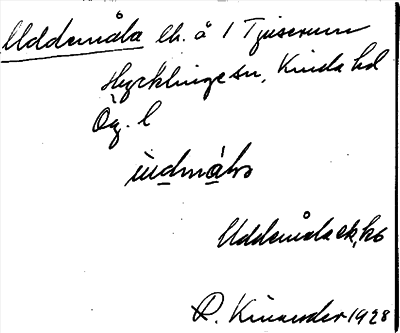 Uddemåla lh. å 1 Tjuserum
Hycklinge sn, Kinda hd
Ög. l
Uddemåla ek, ks
R. Kinander 1928